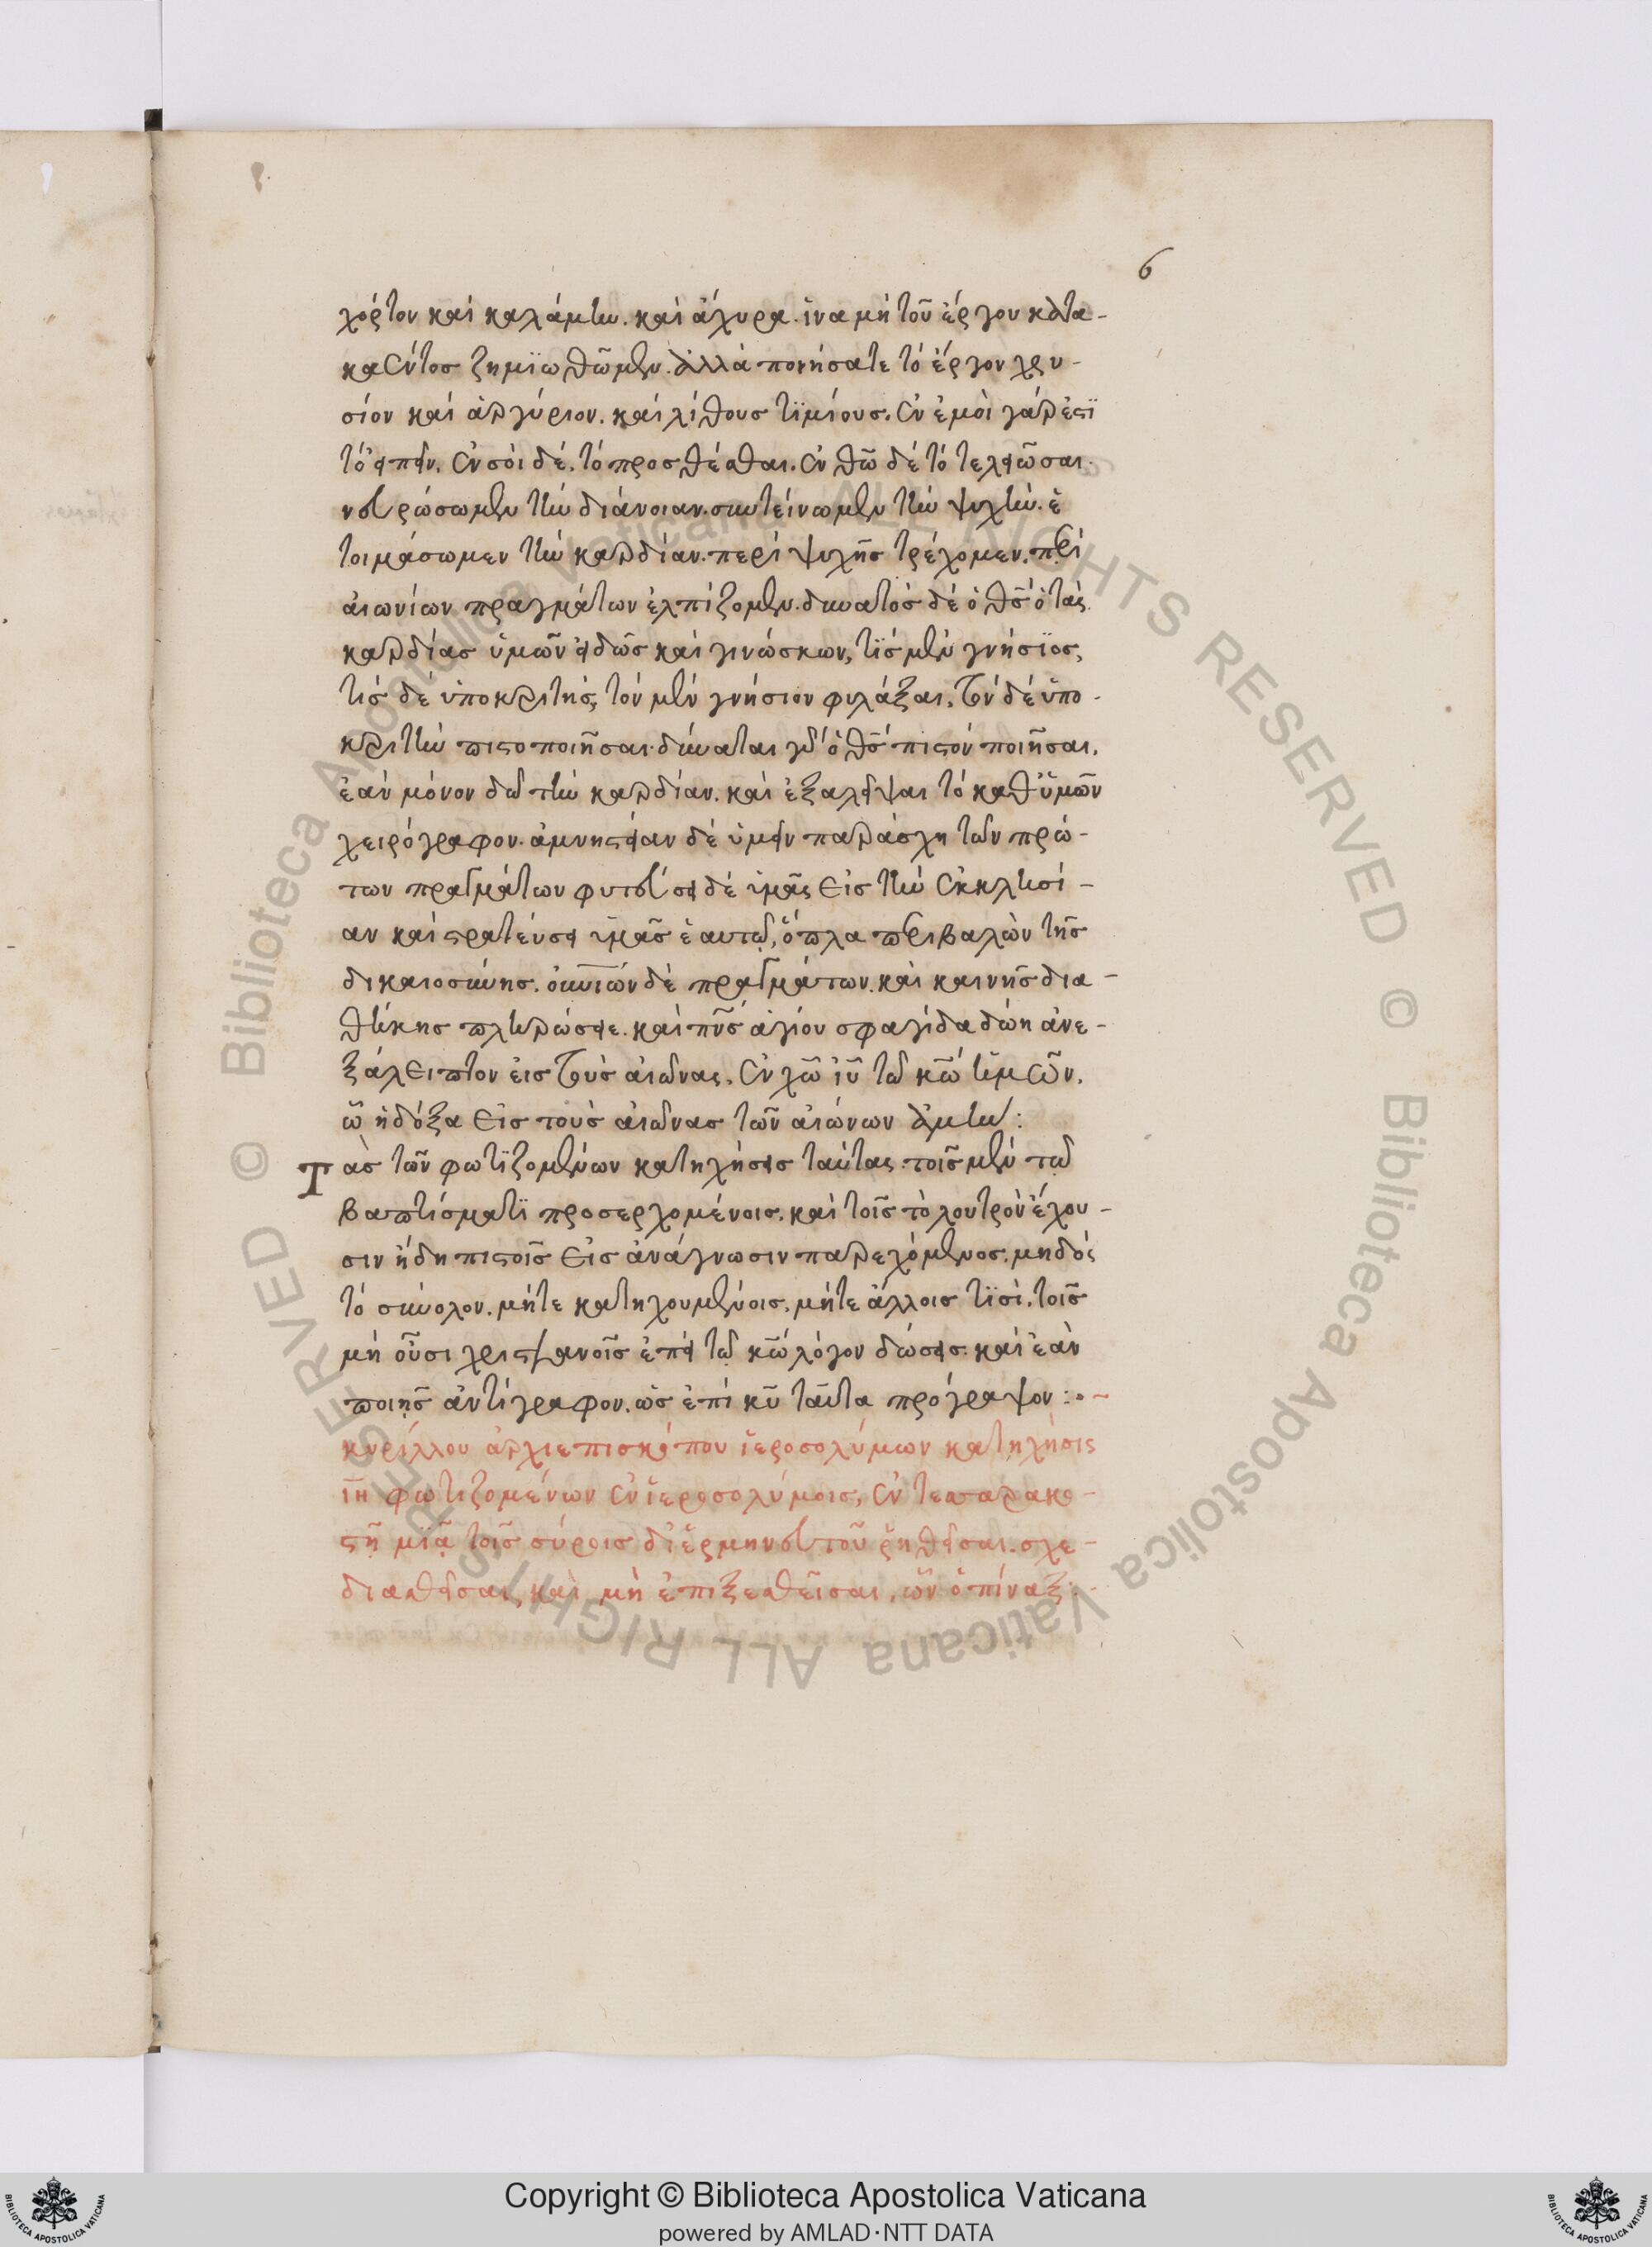 6
χόρτον καὶ καλάμην. καὶ ἄχυρα. ἵνα μὴ τοῦ ἔργου κατα-
καέντος ζημϊωθῶμεν. ἀλλὰ ποιήσατε τὸ ἔργον χρυ-
σίον καὶ ἀργύριον. καὶ λίθους τϊμίους. ἐν ἐμοὶ γάρ ἐστϊ
τὸ εἰπεῖν. ἐν σοὶ δὲ, τὸ προσθέσθαι. ἐν θῶ δὲ τὸ τελειῶσαι.
νευρώσωμεν τὴν διάνοιαν. συντείνωμεν τὴν ψυχὴν. ἑ
τοιμάσωμεν τὴν καρδίαν. περὶ ψυχῆς τρέχομεν. περὶ
αἰωνίων πραγμάτων ἐλπίζομεν. δυνατὸς δὲ ὁ θς ὁ τὰς
καρδίας ὑμῶν εἰδὼς καὶ γινώσκων, τϊς μὲν γνήσϊος,
τίς δὲ ὑποκριτὴς, τὸν μὲν γνήσιον φυλάξαι, τὸν δὲ ὑπο-
κριτὴν πιστοποιῆσαι. δύναται γὰρ ὁ θς πιστὸν ποιῆσαι.
ἐὰν μόνον δῶ τὴν καρδίαν. καὶ ἐξαλείψαι τὸ καθ ὑμῶν
χειρόγραφον. ἀμνηστείαν δὲ ὑμεῖν παράσχη τῶν πρώ-
των πραγμάτων φυτεύσει δὲ ὑμᾶς εἰς τὴν ἐκκλησί-
αν καὶ στρατεύσει ὑμᾶς ἑαυτῷ, ὅπλα περιβαλὼν τῆς
δικαιοσύνης. οὐνιών δὲ πραγμάτων. καὶ καινῆς δια-
θήκης πληρώσειε. καὶ πνς ἁγίου σφαγίδα δώη ἀνε-
ξάλειπτον εἰς τοὺς αἰῶνας. ἐν χῶ ἰυ τῶ κῶ ἡμῶν.
ὧ ἡ δόξα εἰς τοὺς αἰῶνας τῶν αἰώνων ἀμήν:
Τὰς τῶν φωτϊζομένων κατηχήσεις ταύτας τοῖς μὲν τῷ
βαπτίσματϊ προσερχομένοις. καὶ τοῖς τὸ λουτρὸν ἔχου-
σιν ἤδη πιστοῖς εἰς ἀνάγνωσιν παρεχόμενος, μὴ δὸς
τὸ σύνολον. μήτε κατηχουμένοις, μήτε ἄλλοις τϊσὶ, τοῖς
μὴ οὖσι χριστιανοῖς ἐπεὶ τῶ κῶ λόγον δώσεις. καὶ ἐὰν
ποιῇς ἀντίγραφον. ὡς ἐπὶ κυ ταῦτα πρόγραψον:-~
κυρίλλου ἀρχιεπισκόπου ἱεροσολύμων κατηχήσις
ιη φωτιζομένων ἐν ἱεροσολύμοις, ἐν τεσσαρακο-
στῇ μϊᾷ τοῖς σύροις δι ἑρμηνευτοῦ ῥηθεῖσαι. σχε-
διασθεῖσαι, καὶ μὴ ἐπιξεσθεῖσαι, ὧν ὁ πίναξ:-
Copyright © Biblioteca Apostolica Vaticana
powered by AMLAD·NTT DATA
© Biblioteca Apostolica Vaticana ALL RIGHTS RESERVED © Biblioteca Apostolica Vaticana ALL RIGHTS RESERVED